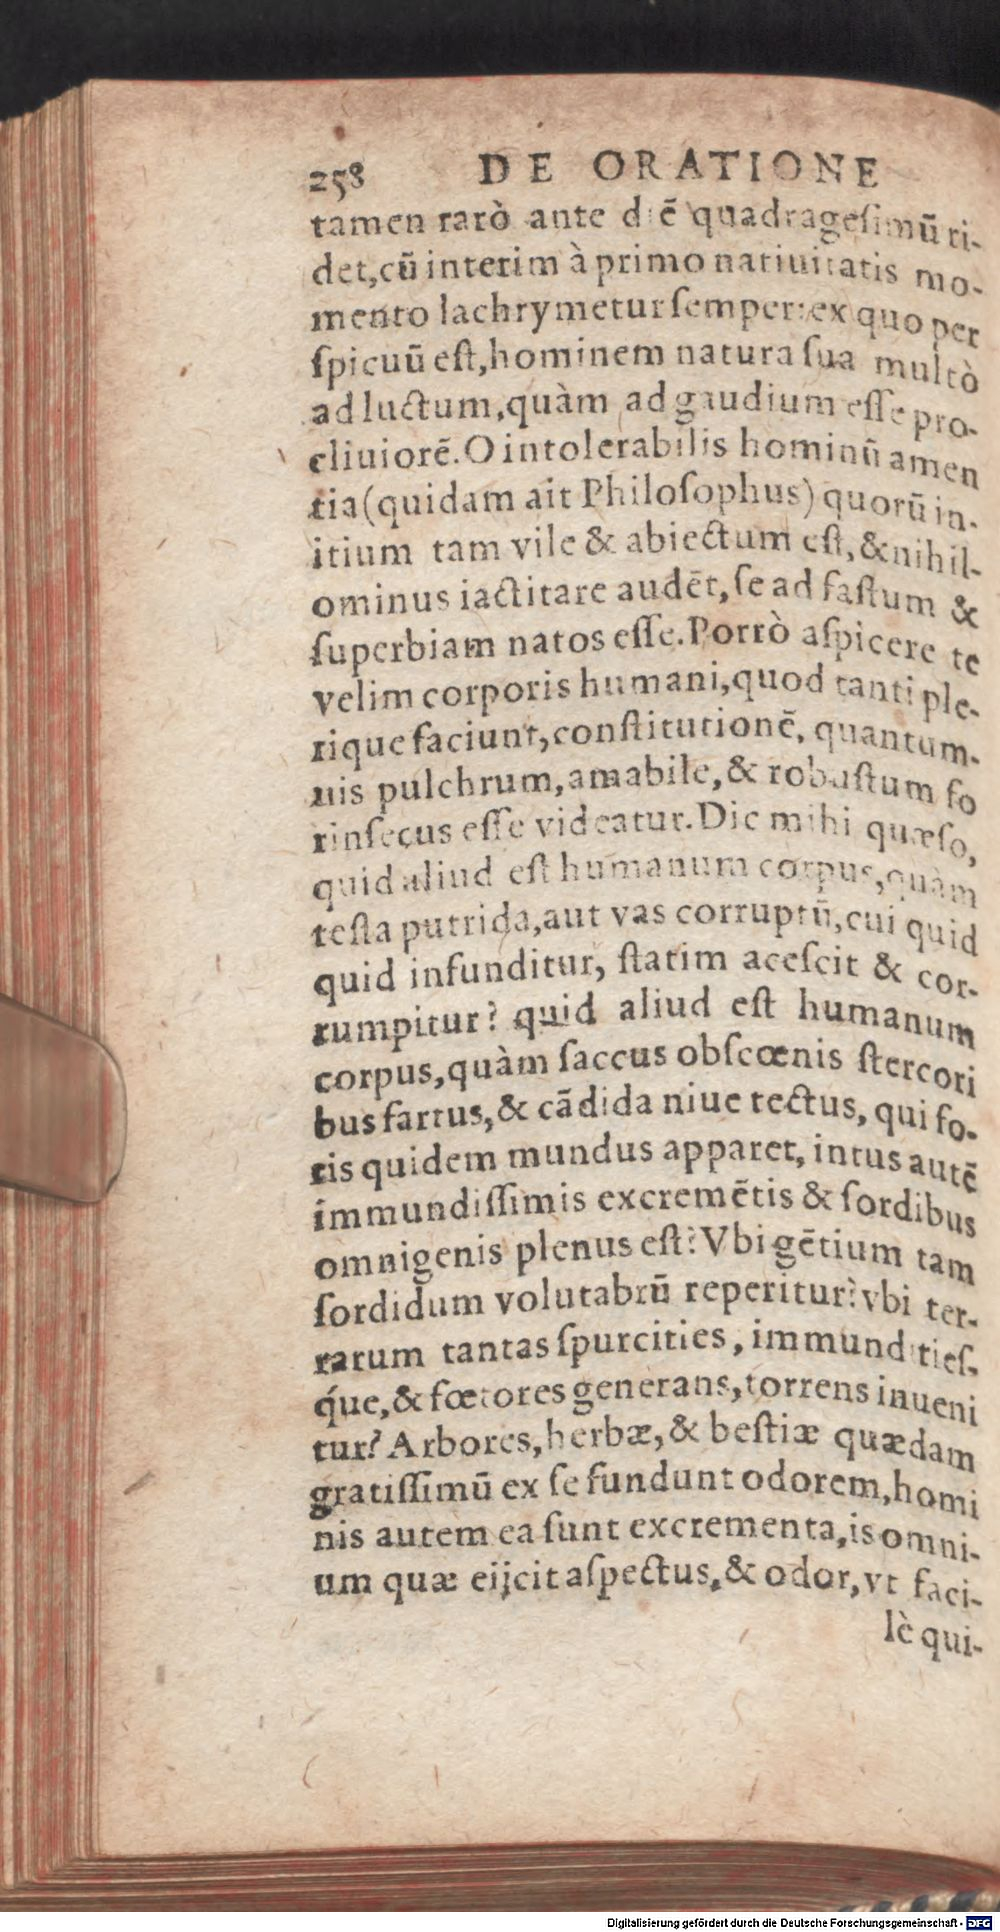 258 DE ORATIONE
tamen rarò ante diē quadrageſimū ri-
det,cū interim à primo natiuitatis mo-
mento lachrymetur ſemper: ex quo per
ſpicuū eſt,hominem natura ſua multò
ad luctum,quàm ad gaudium eſſe pro-
cliuiorē.O intolerabilis hominū amen
tia(quidam ait Philoſophus)quorū in-
itium tam vile & abiectum eſt,&nihil-
ominus iactitare audēt,ſe ad faſtum &
ſuperbiam natos eſſe.Porrò aſpicere te
velim corporis humani,quod tanti ple-
rique faciunt,conſtitutionē, quantum-
uis pulchrum,amabile,& robuſtum fo
rinſecus eſſe videatur.Dic mihi quæſo,
quid aliud eſt humanum corpus,quàm
teſta putrida,aut vas corruptū,cui quid
quid infunditur, ſtatim aceſcit & cor-
rumpitur? quid aliud eſt humanum
corpus,quàm ſaccus obſcœnis ſtercori
bus fartus,& cādida niue tectus, qui fo-
ris quidem mundus apparet, intus autē
immundiſſimis excremētis & ſordibus
omnigenis plenus eſt? Vbi gētium tam
ſordidum volutabrū reperitur? vbi ter-
rarum tantas ſpurcities, immunditieſ-
q́ue,& fœtores generans,torrens inueni
tur? Arbores,herbæ,& beſtiæ quædam
gratiſſimū ex ſe fundunt odorem,homi
nis autem ea ſunt excrementa,is omni-
um quæ eijcit aſpectus,& odor,vt faci-
lè qui-
Digitalisierung gefördert durch die Deutsche Forschungsgemeinschaft - DFG